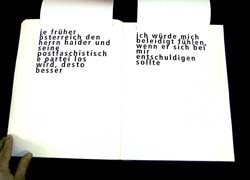 je früher
österreich den
herrn haider und
seine
postfaschistisch
e partei los
wird, desto
besser
ich würde mich
beleidigt fühlen,
wenn er sich bei
mir
entschuldigen
sollte